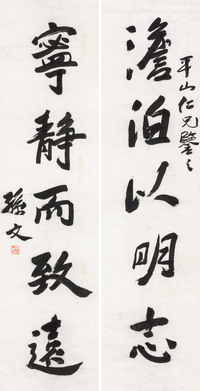 平山仁兄鑒之
澹泊以明志
寧靜而致遠
孫文